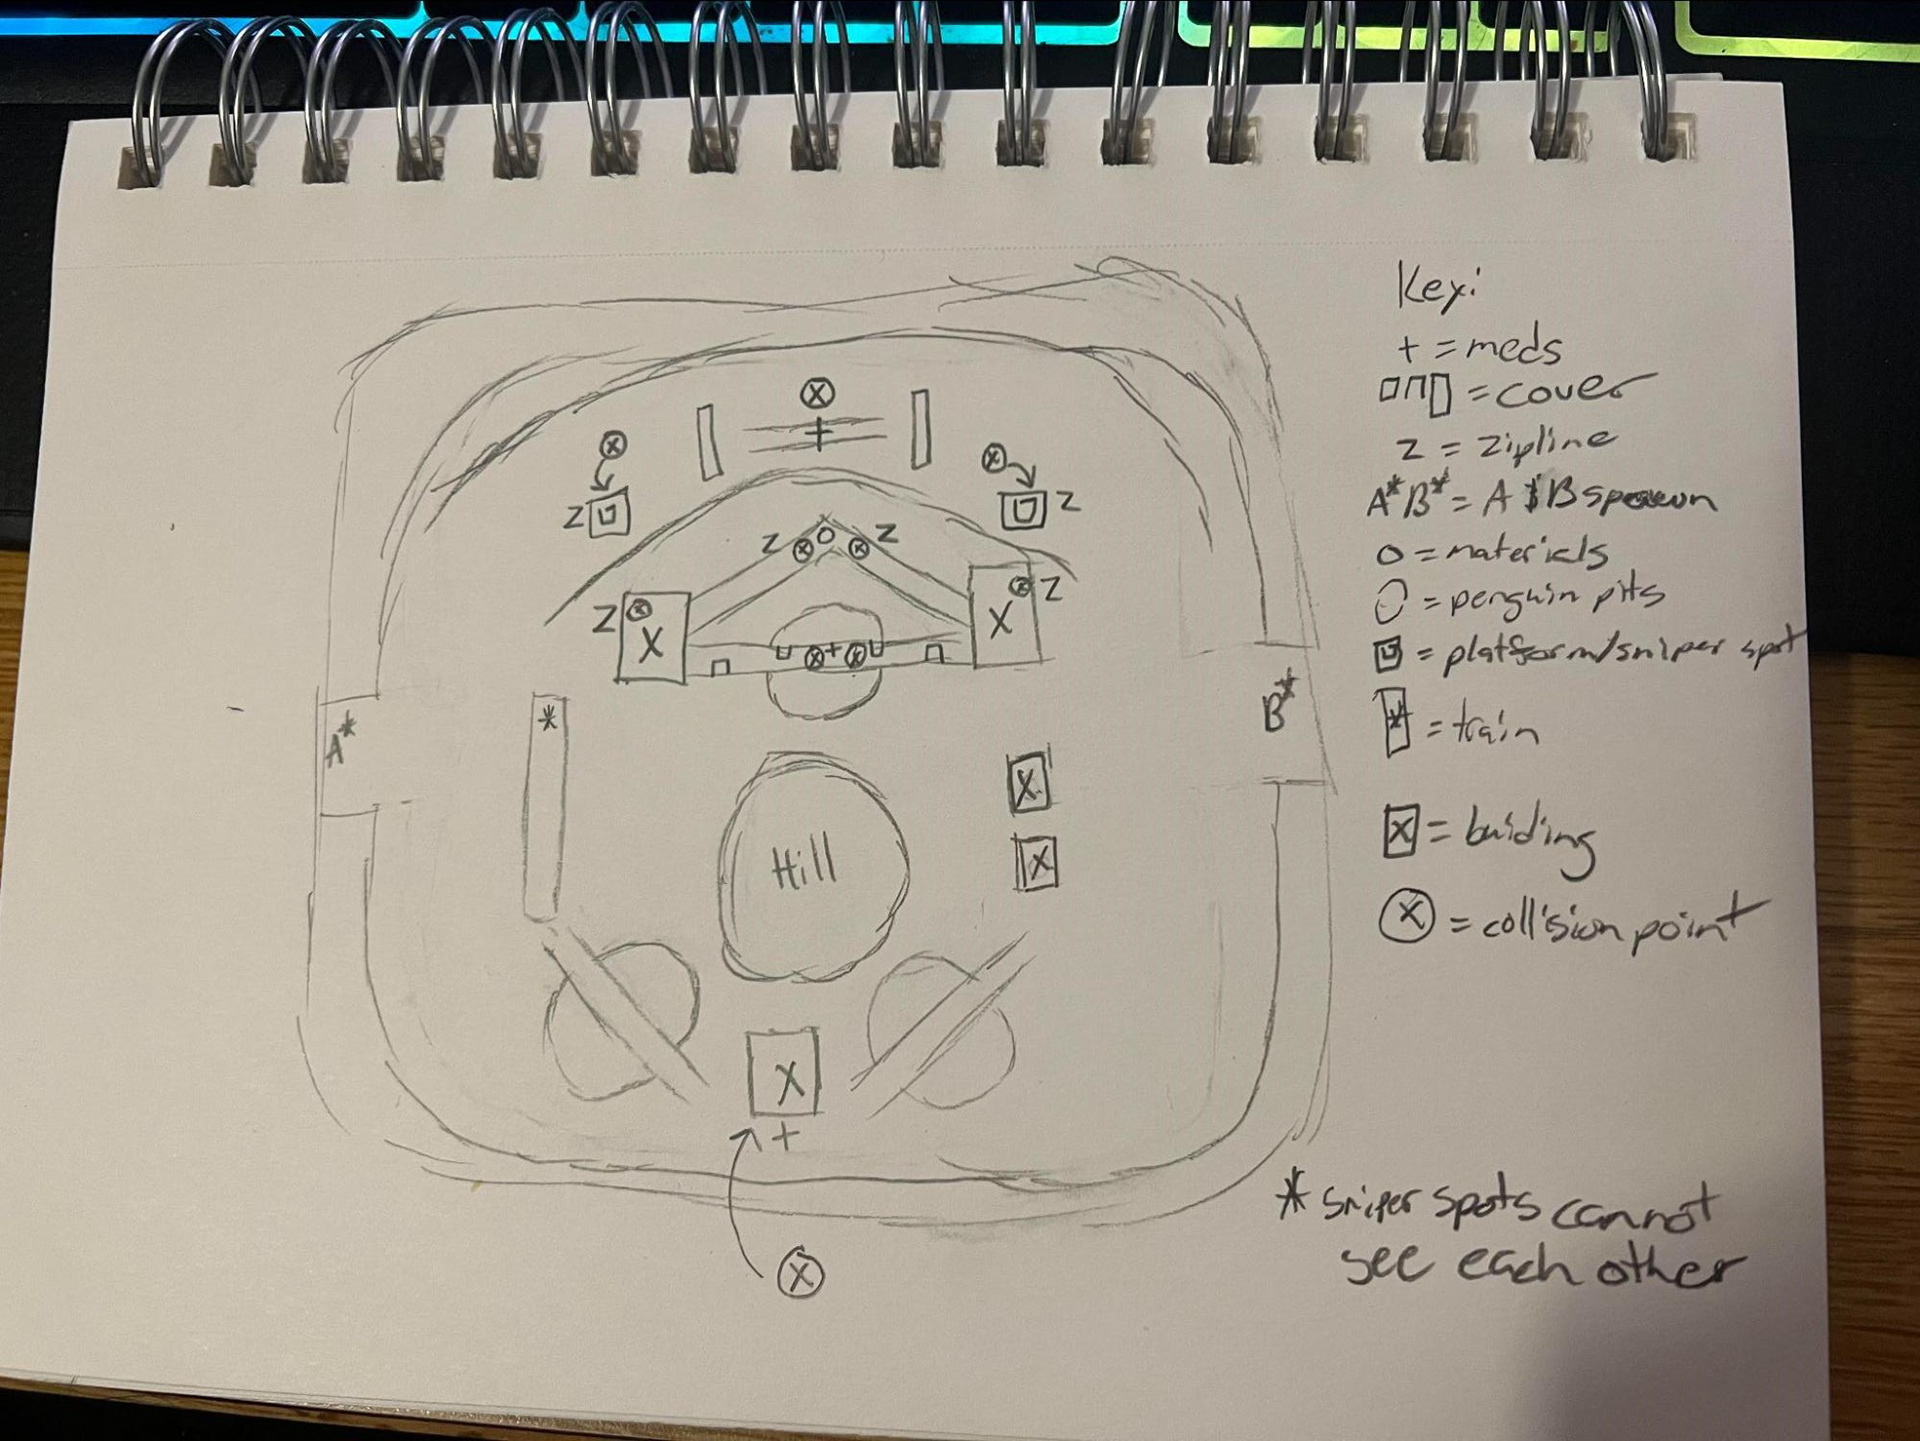 Key:
+ = meds
= cover
Z = zipline
A* B* = A & B spawn
o = materials
= penguin pits
= platform/sniper spot
* = train
X = building
X = collision point
X
X
X
Z
Z
Z
O
Z
X
X
Z
X
X
Z
X
X
Z
X
X
+
X
A*
*
B*
X
X
Hill
X
+
X
* sniper spots cannot
see each other